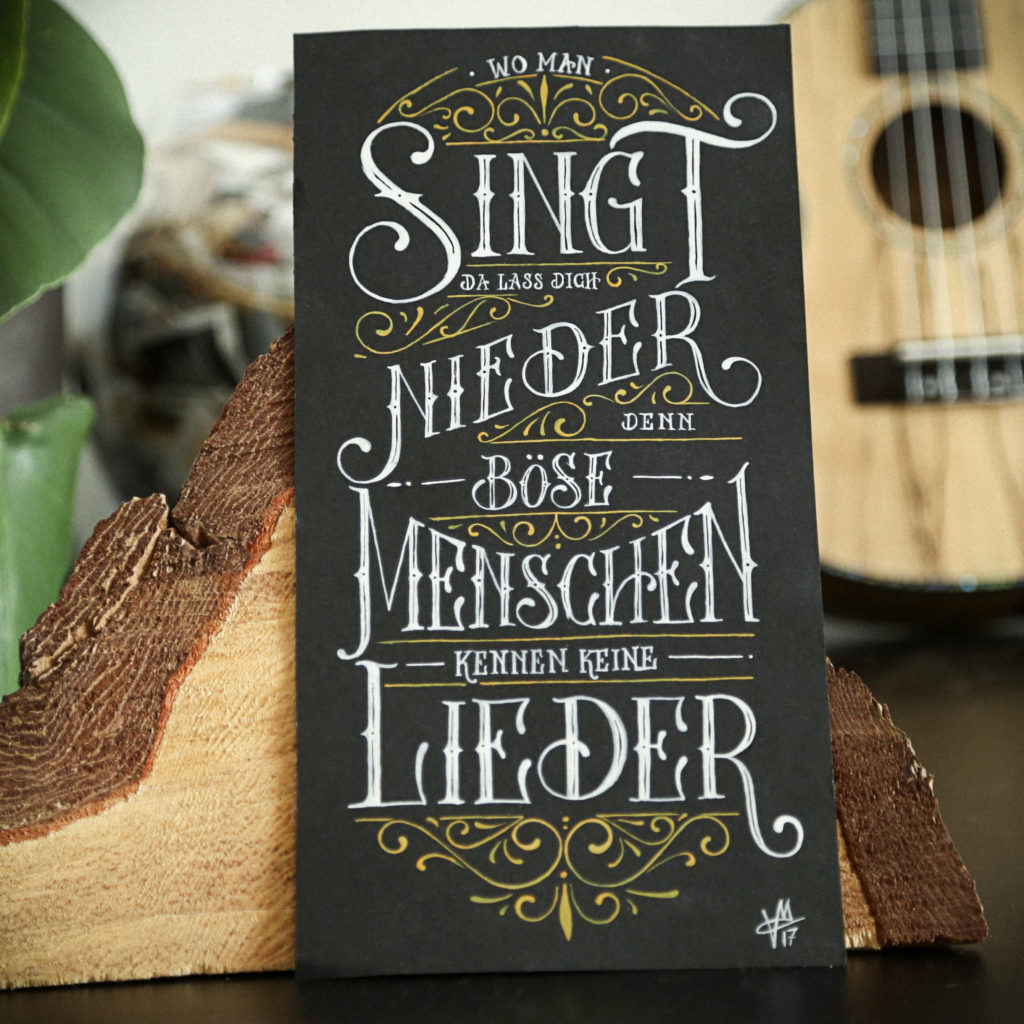 WO MAN
SINGT
DA LASS DICH
NIEDER
DENN
BÖSE
MENSCHEN
KENNEN KEINE
LIEDER
VM
17